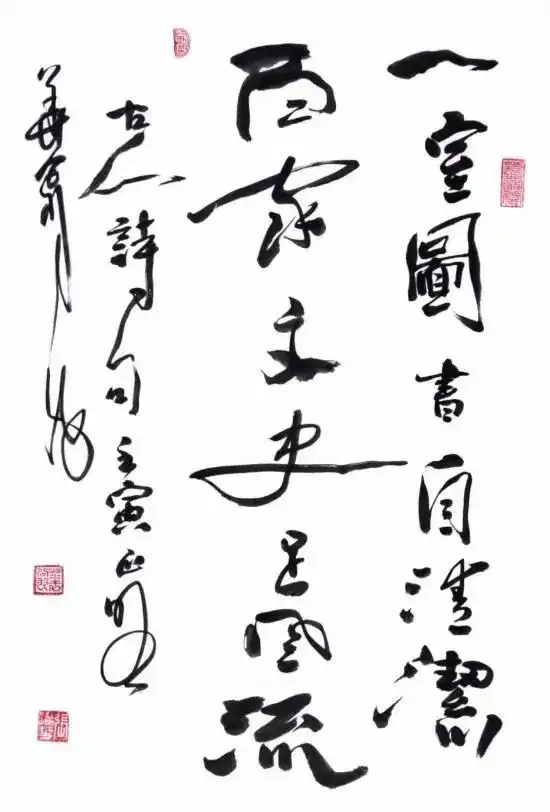 一室圖書自清潔
百家文史足風流
古人詩句壬寅